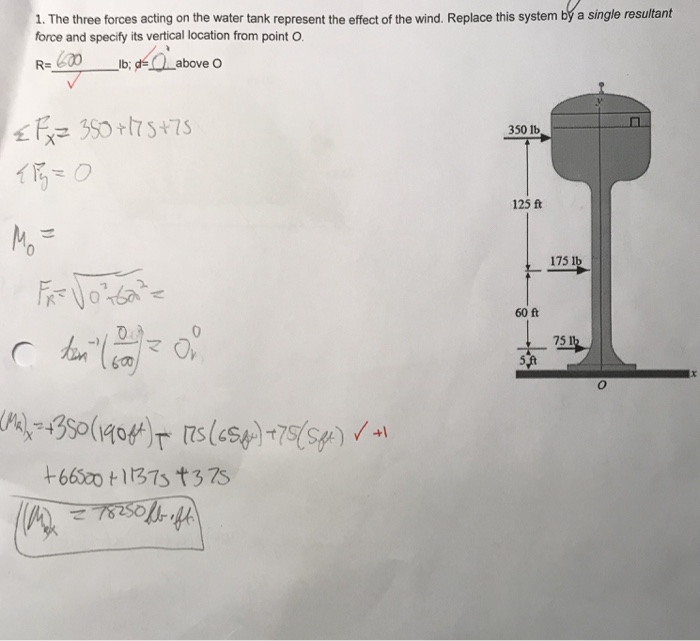 1. The three forces acting on the water tank represent the effect of the wind. Replace this system by a single resultant
force and specify its vertical location from point O.
R= 600 lb; d= 0' above O
✓
ΣFx= 350+175+75
ΣFy= 0
Mo=
FR=√0²+600²=
tan⁻¹(0/600)= 0°
(MR)x=+350(190ft)+ 175(65ft)+75(5ft) ✓ +1
+66500+11375+375
(MR)x = 78250 lb·ft
y
350 lb
125 ft
175 lb
60 ft
75 lb
5 ft
x
O